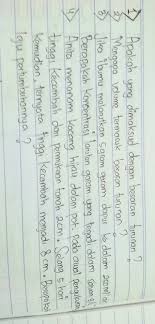 1) Apakah yang dimaksud dengan besaran turunan?
2) Mengapa volume termasuk besaran turunan?
3) Jika Ibumu melarutkan garam dapur 16 dalam
Berapakah konsentrasi larutan garam yang terjadi dalam
4) Anita menanam kacang hijau dalam pot. pada awal pengukuran
tinggi kecambah dari permukaan tanah 2cm. Selang 5 hari
kemudian, ternyata tinggi kecambah menjadi 8 cm. Berapakah
laju pertumbuhannya?